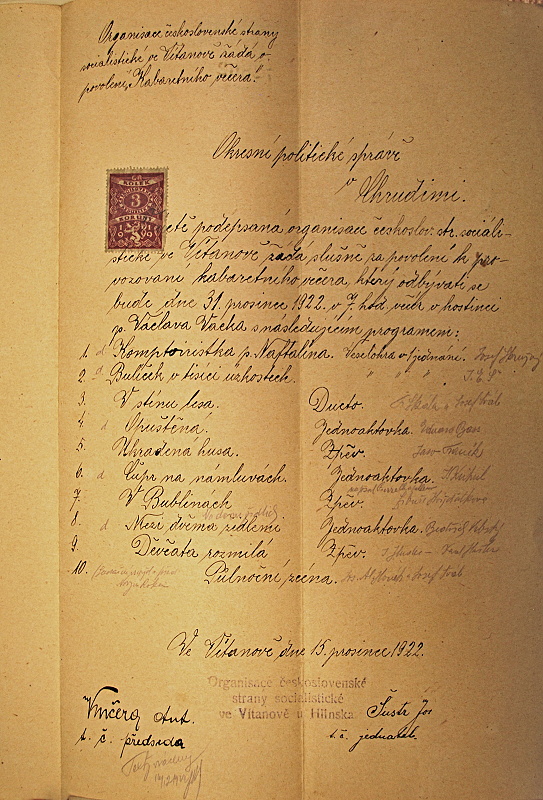 Organisace československé strany
socialistické ve Vítanově žádá o
povolení „Kabaretního večera."
Okresní politické správě
v Chrudimi.
KOLEK
3
KORUNY
1919
níže podepsaná organisace českoslov. str. sociali-
stické ve Vítanově žádá slušně za povolení k pro-
vozování kabaretního večera, který odbývati se
bude dne 31. prosince 1922 v 7. hod. večer v hostinci
p. Václava Vacka s následujícím programem:
1. d Komptoiristka p. Naftalina. Veselohra v 1 jednání. Josef
2. d Bulíček v tisíci úzkostech. " " "
3. V stínu lesa. Dueto.
4. d Opuštěná. Jednoaktovka.
5. Ukradená husa. Zpěv.
6. d Čupr na námluvách. Jednoaktovka.
7. V Bublinách Zpěv.
8. d Mezi dvěma židlemi Jednoaktovka.
9. Děvčata rozmilá Zpěv.
10. Půlnoční scéna.
Ve Vítanově dne 15. prosince 1922.
Organisace československé
strany socialistické
ve Vítanově u Hlinska
Vinčera Ant. Šustr Jos
t. č. předseda t. č. jednatel.